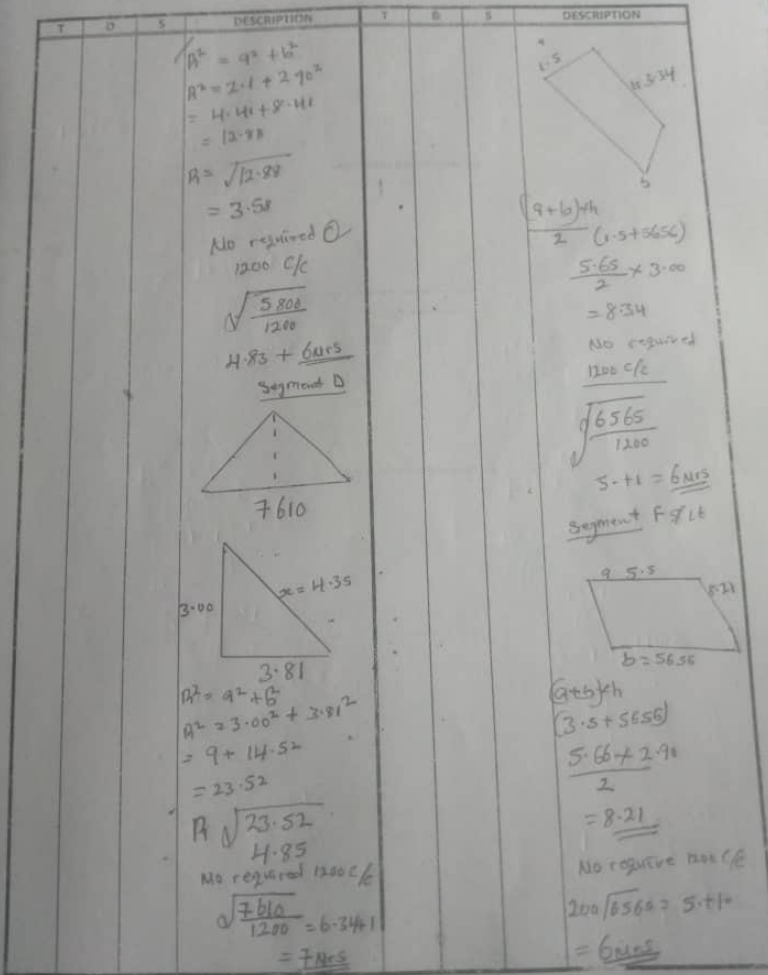 T D S DESCRIPTION T D S DESCRIPTION
R² = a² + b²
R² = 2.1 + 2.90²
= 4.41 + 8.41
= 12.88
R = √12.88
= 3.58
No required
1200 C/C
√5800
1200
4.83 + 6Nrs
Segment D
7610
3.00
x = 4.35
3.81
R² = a² + b²
R² = 3.00² + 3.81²
= 9 + 14.52
= 23.52
R √23.52
4.85
No required 1200 C/C
√7610
1200 = 6.34+1
= 7Nrs
1.5
3.34
b
(a+b)+h
2 (1.5+5656)
5.65 × 3.00
2
= 8.34
No required
1200 C/C
√6565
1200
5.+1 = 6Nrs
Segment F
a 5.5
8.21
b = 5656
(a+b)+h
(3.5+5656)
5.66 × 2.90
2
= 8.21
No require 1200 C/C
200 √6560 = 5.+1
= 6Nrs